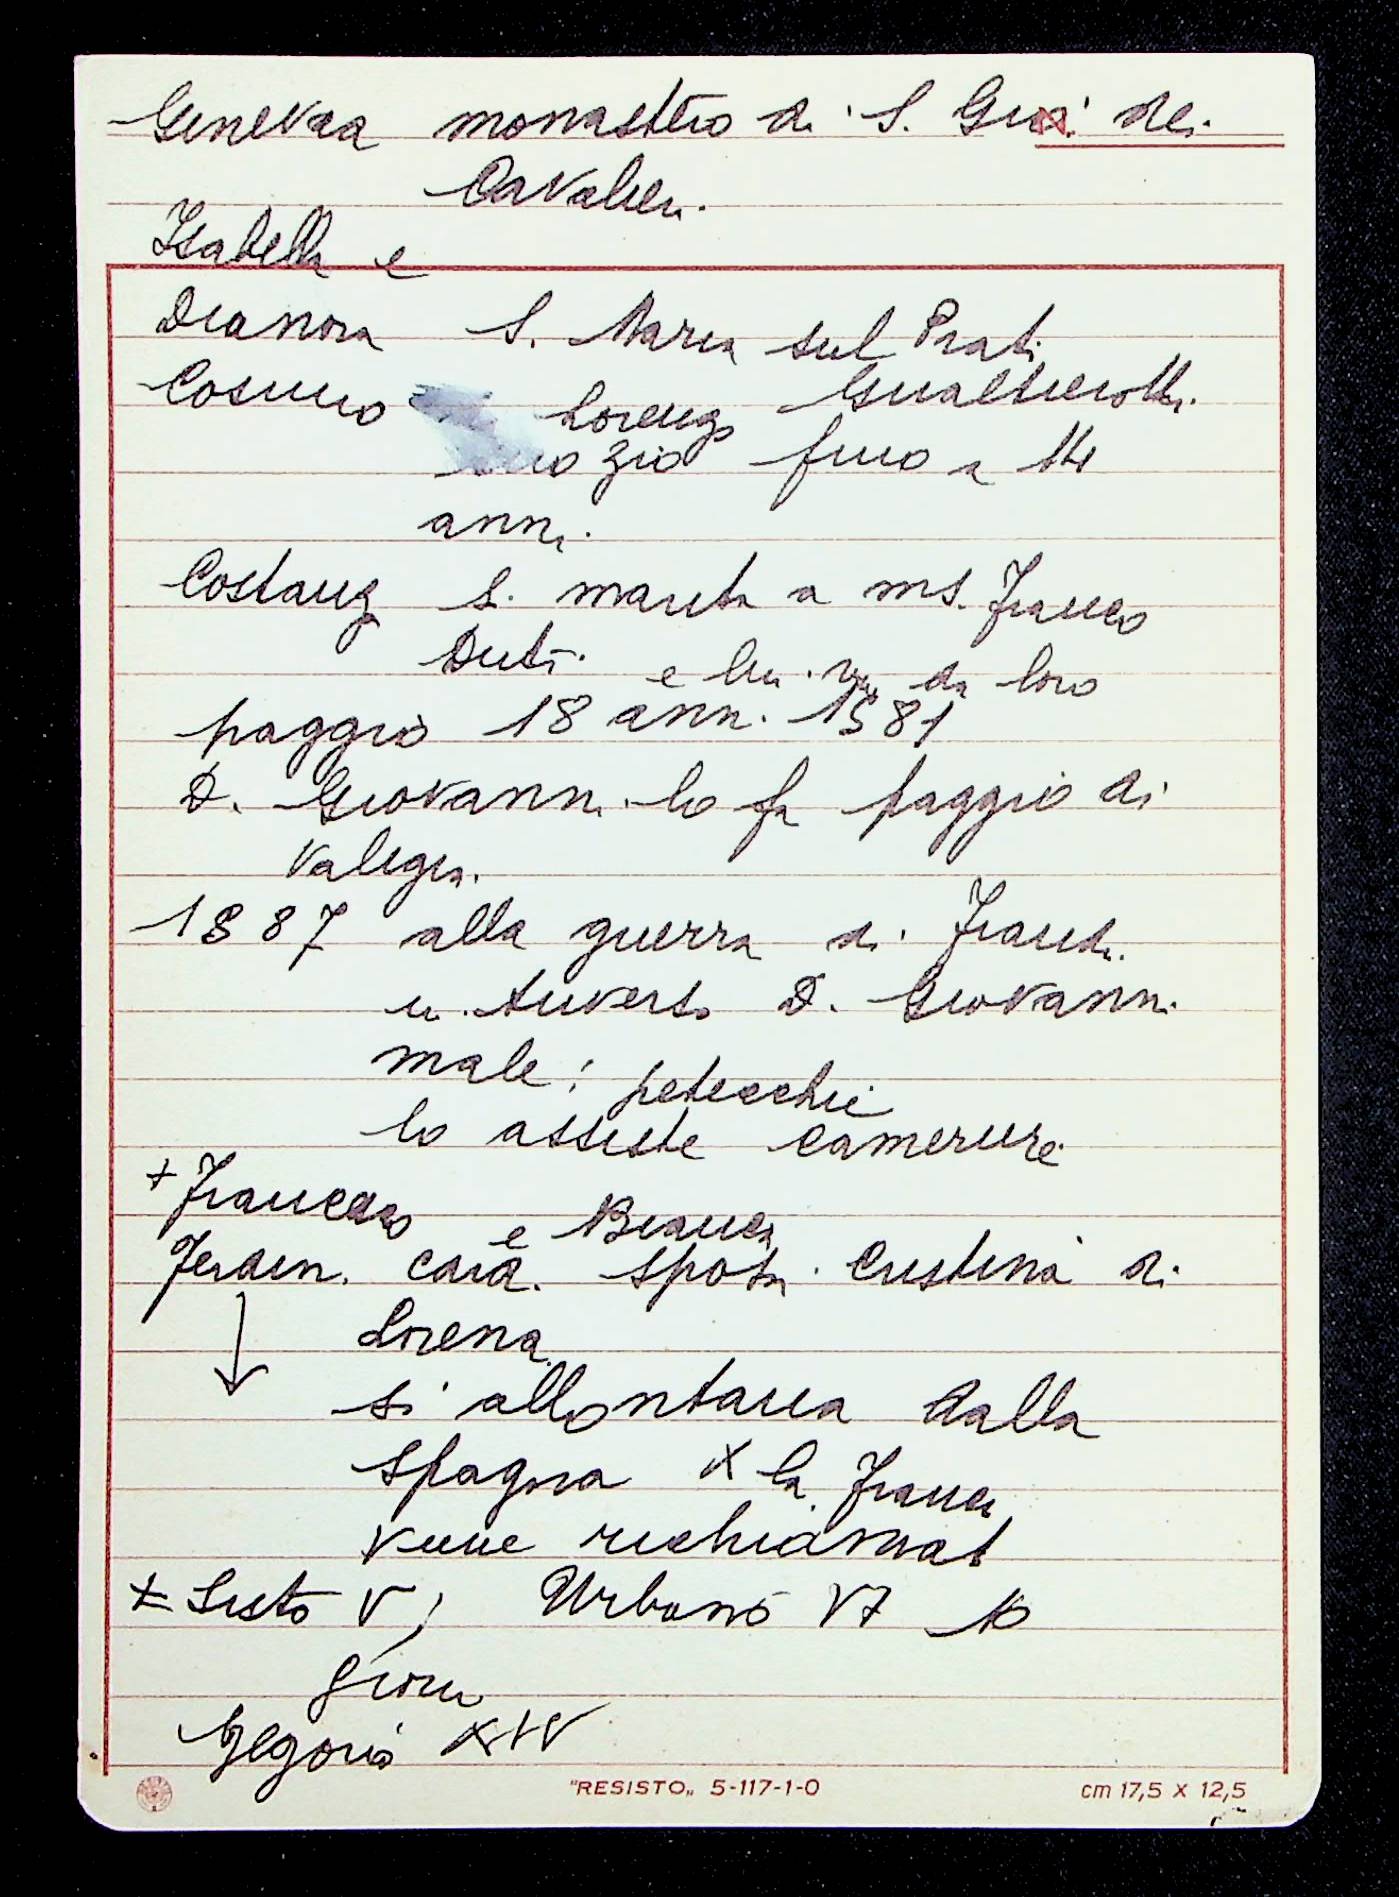 Ginevra monastero di S. Giov. dei
Cavalieri.
Isabella e
Dianora S. Maria sul Prato
Cosimo Lorenzo Gualterotti
suo zio fino a 14
anni.
Costanza S. marita a ms. Franco
Duti e lui va da loro
paggio 18 anni. 1581
D. Giovanni lo fa paggio di
valigia.
1587 alla guerra di Fiandr.
in Anversa D. Giovanni
male: petecchie
lo assiste cameriere
+ Francesco e Bianca
Ferdin. card. sposa Cristina di
Lorena
si allontana dalla
Spagna x la Francia
viene richiamat
+ Sisto V, Urbano VII 10
giorni
Gregorio XIV
"RESISTO„ 5-117-1-0 cm 17,5 x 12,5